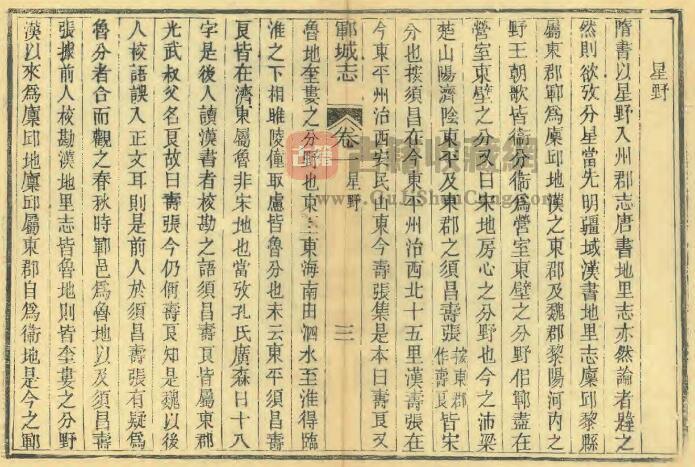 星野
隋書以星野入州郡志唐書地里志亦然論者韙之
然則欲攷分星當先明疆域漢書地里志廩邱黎縣
屬東郡鄆為廩邱地漢之東郡及魏郡黎陽河内之
野王朝歌皆衛分衛為營室東壁之分野佀鄆盡在
營室東壁之分又曰宋地房心之分野也今之沛梁
楚山陽濟陰東平及東郡之須昌壽張按東郡作壽良皆宋
分也按須昌在今東平州治西北十五里漢壽張在
今東平州治西安民山東今壽張集是本曰壽良又
鄆城志 卷一 星野 三
魯地奎婁之分野也東至東海南由泗水至淮得臨
淮之下相睢陵僮取慮皆魯分也末云東平須昌壽
良皆在濟東屬魯非宋地也當攷孔氏廣森曰十八
字是後人讀漢書者校勘之語須昌壽良皆屬東郡
光武叔父名良故曰壽張今仍偁壽良知是魏以後
人校語誤入正文耳則是前人於須昌壽張有疑為
魯分者合而觀之春秋時鄆邑為魯地以及須昌壽
張據前人校勘漢地里志皆魯地則皆奎婁之分野
漢以來為廩邱地廩邱屬東郡自為衛地是今之鄆
古籍 古籍收藏網